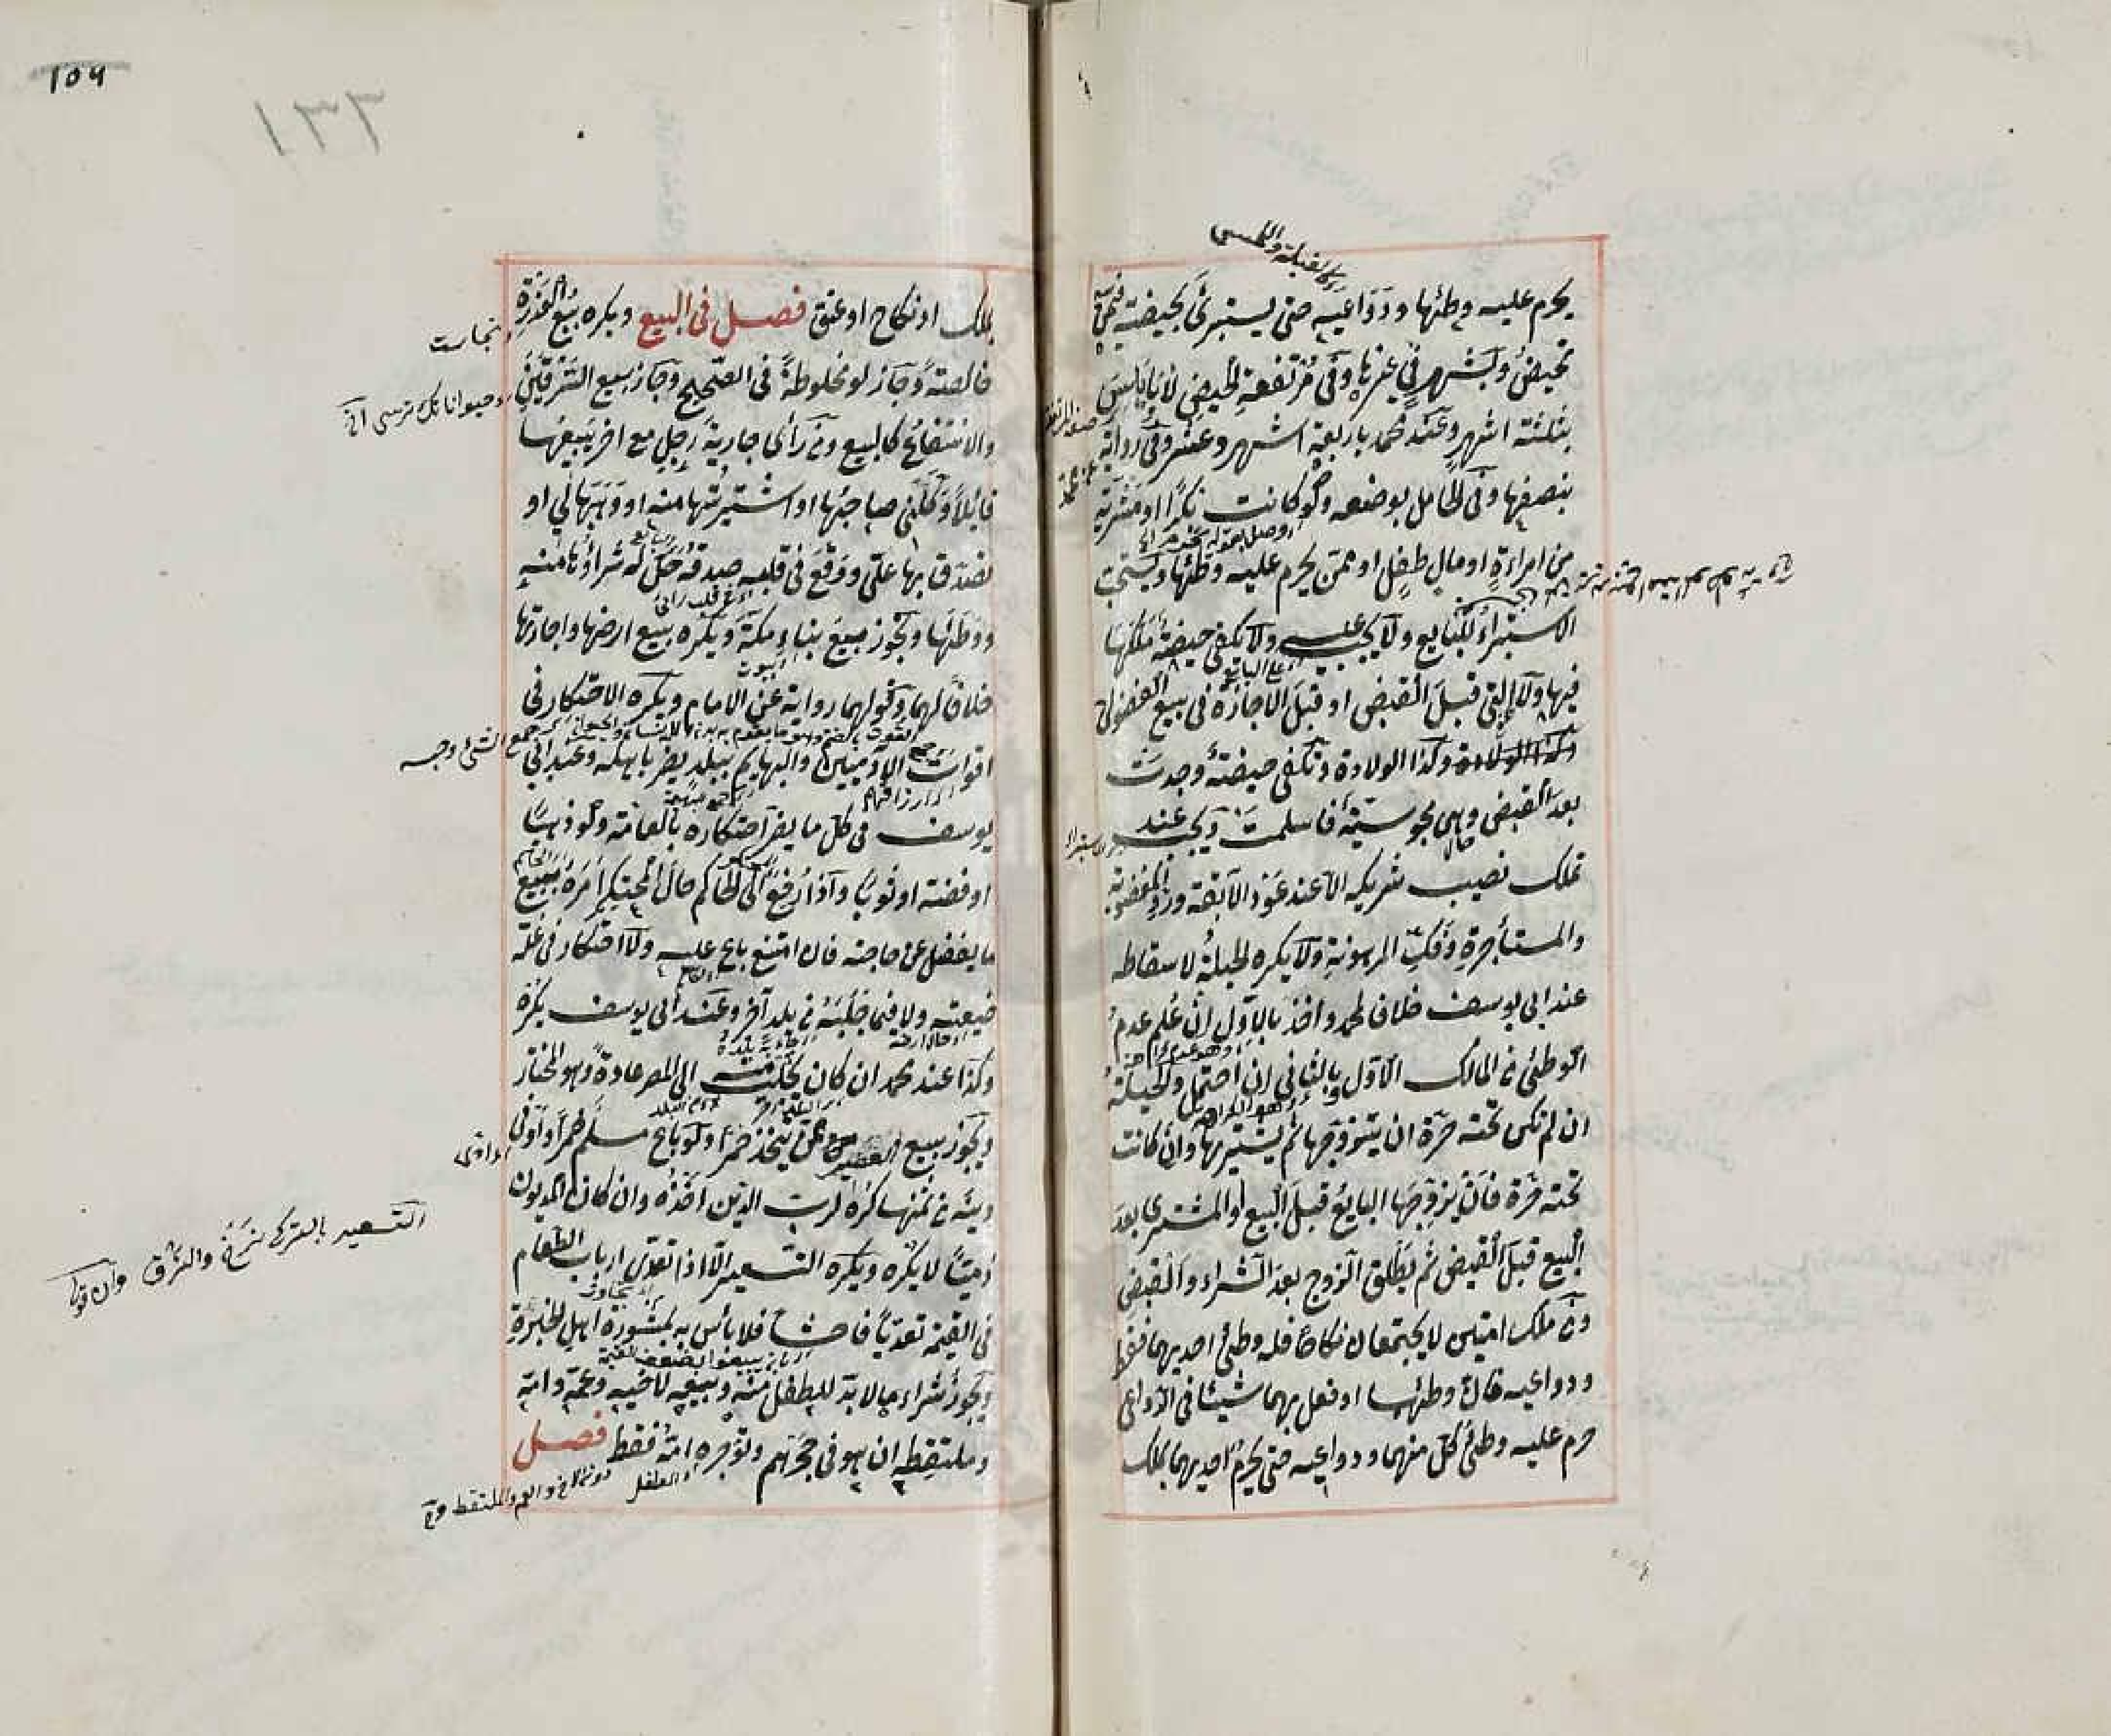 يحرم عليه وطئها ودواعيه حتى يستبرئ بحيضة فيمن
كالقبلة واللمس
تحيض وبشهر في غيرها وفي مرتفعة الحيض لا باياس
بثلثة اشهر وعند محمد باربعة اشهر وعشر وفي رواية
بنصفها وفي الحامل بوضعه ولو كانت بكرا او مشرية
من امراءة او مال طفل او ممن يحرم عليه وطئها ويستحب
الاستبراء للبايع ولا يجب عليه ولا تكفي حيضة ملكها
اى على البايع
فيها ولا التي قبل القبض او قبل الاجازة في بيع الفضولى
وكذا الولادة وكذا الولادة وتكفي حيضة وجدت
بعد القبض وهي مجوسية فاسلمت ويجب عند
تملك نصيب شريكه لا عند عود الآبقة ورد المغصوبة
والمستأجرة وفك المرهونة ولا يكره الحيلة لاسقاطه
عند ابي يوسف خلافا لمحمد واخذ بالاول ان علم عدم
الوطئ من المالك الاول وبالثاني ان احتمل والحيلة
ان لم تكن تحته حرة ان يتزوجها ثم يشتريها وان كانت
تحته حرة فان يزوجها البايع قبل البيع او المشترى بعد
البيع قبل القبض ثم يطلق الزوج بعد الشراء والقبض
ومن ملك امتين لا يجتمعان نكاحا فله وطئ احديهما فقط
ودواعيه فان وطئهما او فعل بهما شيئا في الدواعى
حرم عليه وطئ كل منهما ودواعيه حتى يحرم احديهما بملك
١٥٩
١٣٦
بملك او نكاح او عتق فصل في البيع ويكره بيع العذرة
نجاست
خالصة وجاز لو مخلوطة في الصحيح وجاز بيع السرقين
حيواناتك ترسى
والانتفاع كالبيع ومن رأى جارية رجل مع اخر يبيعها
قائلا وكلني صاحبها او اشتريتها منه او وهبها لي او
تصدق بها علي ووقع في قلبه صدقه حل له شراؤها منه
ووطئها ويجوز بيع بناء مكة ويكره بيع ارضها واجارتها
بيوت
خلافا لهما وقولهما رواية عن الامام ويكره الاحتكار في
اقوات الآدميين والبهايم ببلد يضر باهله وعند ابي
جمع الشئ وحبسه
يوسف في كل ما يضر احتكاره بالعامة ولو ذهبا
او فضة او ثوبا واذا رفع الى الحاكم حال المحتكر امره ببيع
ما يفضل عن حاجته فان امتنع باع عليه ولا احتكار في غلة
ضيعته ولا فيما جلبه من بلد آخر وعند ابي يوسف يكره
وكذا عند محمد ان كان يجلب منه الى المصر عادة وهو المختار
ويجوز بيع العصير ممن يتخذه خمرا ولو باع مسلم خمرا واوفى
دينه من ثمنها كره لرب الدين اخذه وان كان المديون
ذميا لا يكره ويكره التسعير الا اذا تعدى ارباب الطعام
التسعير بالتركى نرخ
في القيمة تعديا فاحشا فلا بأس به بمشورة اهل الخبرة
ويجوز شراء ما لابد للطفل منه وبيعه لاخيه وعمه وامه
وملتقطه ان هو في حجرهم وتؤجره امه فقط فصل